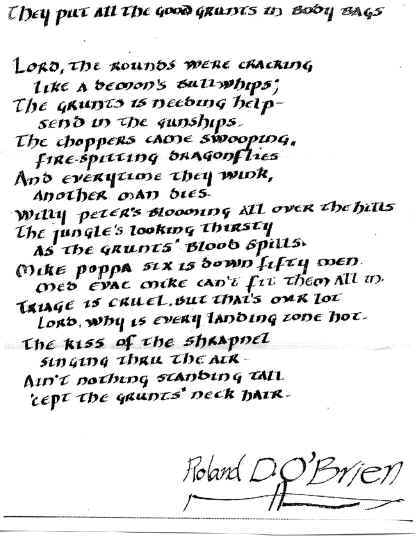 They put all the good grunts in body bags
Lord, the rounds were cracking
like a demon's bullwhips;
The grunts is needing help-
send in the gunships.
The choppers came swooping,
fire-spitting dragonflies
And everytime they wink,
another man dies.
Willy Peter's blooming all over the hills
The jungle's looking thirsty
as the grunts' blood spills.
Mike Poppa Six is down fifty men.
Med evac Mike can't fit them all in.
Triage is cruel, but that's our lot
Lord, why is every landing zone hot.
The kiss of the shrapnel
singing thru the air-
Ain't nothing standing tall
'cept the grunts' neck hair.
Roland D. O'Brien